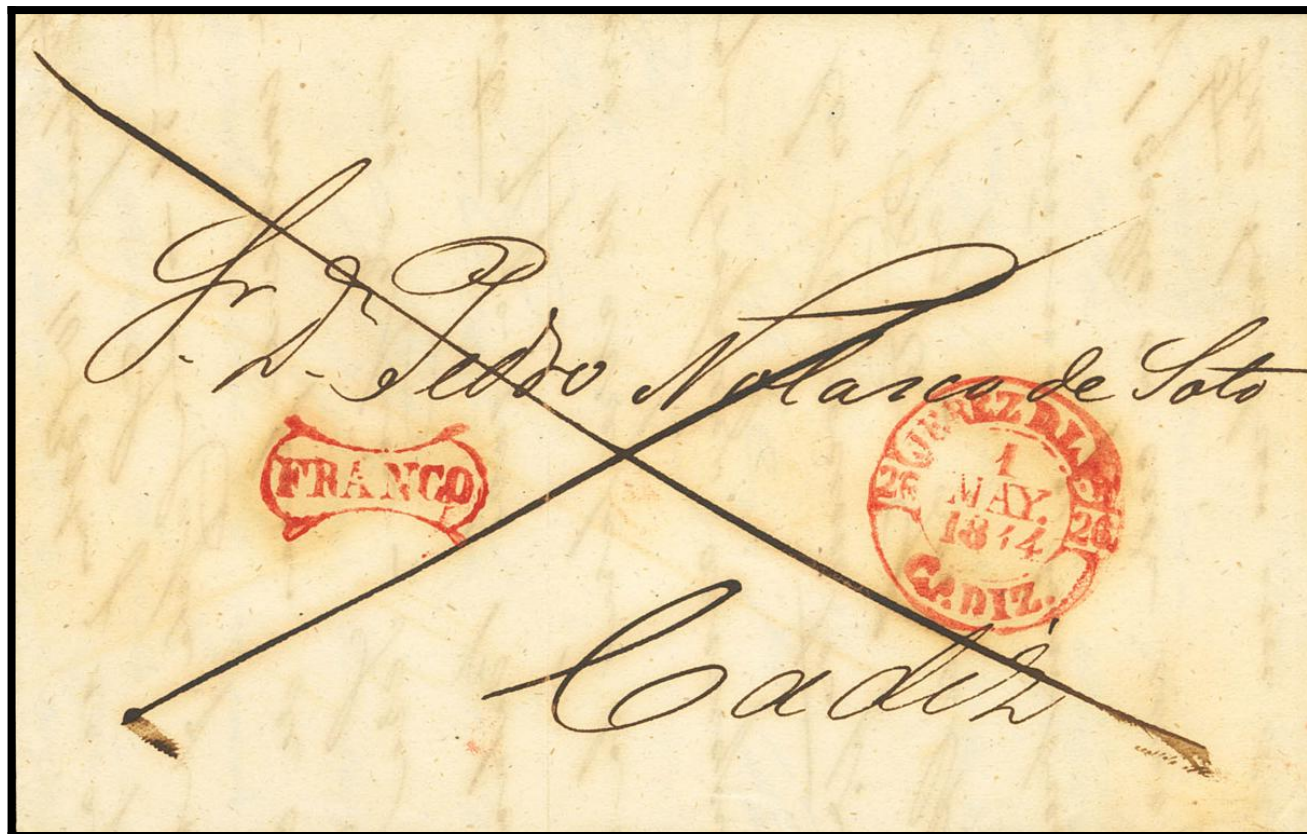 Sr. Dn. Pedro Nolasco de Soto
FRANCO
JEREZ DLA F.
26 26
1
MAY.
1844
CADIZ.
Cadiz